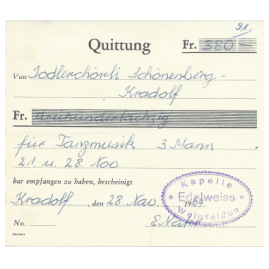 21.
Quittung Fr. 380.—
Von Jodlerchörli Schönenberg-
Kradolf
Fr. dreihundertachzig
für Tanzmusik 3 Mann
21 u. 28. Nov
bar empfangen zu haben, bescheinigt
Kradolf, den 28 Nov. 19
No.
Kapelle
Edelweiss
Weinfelden